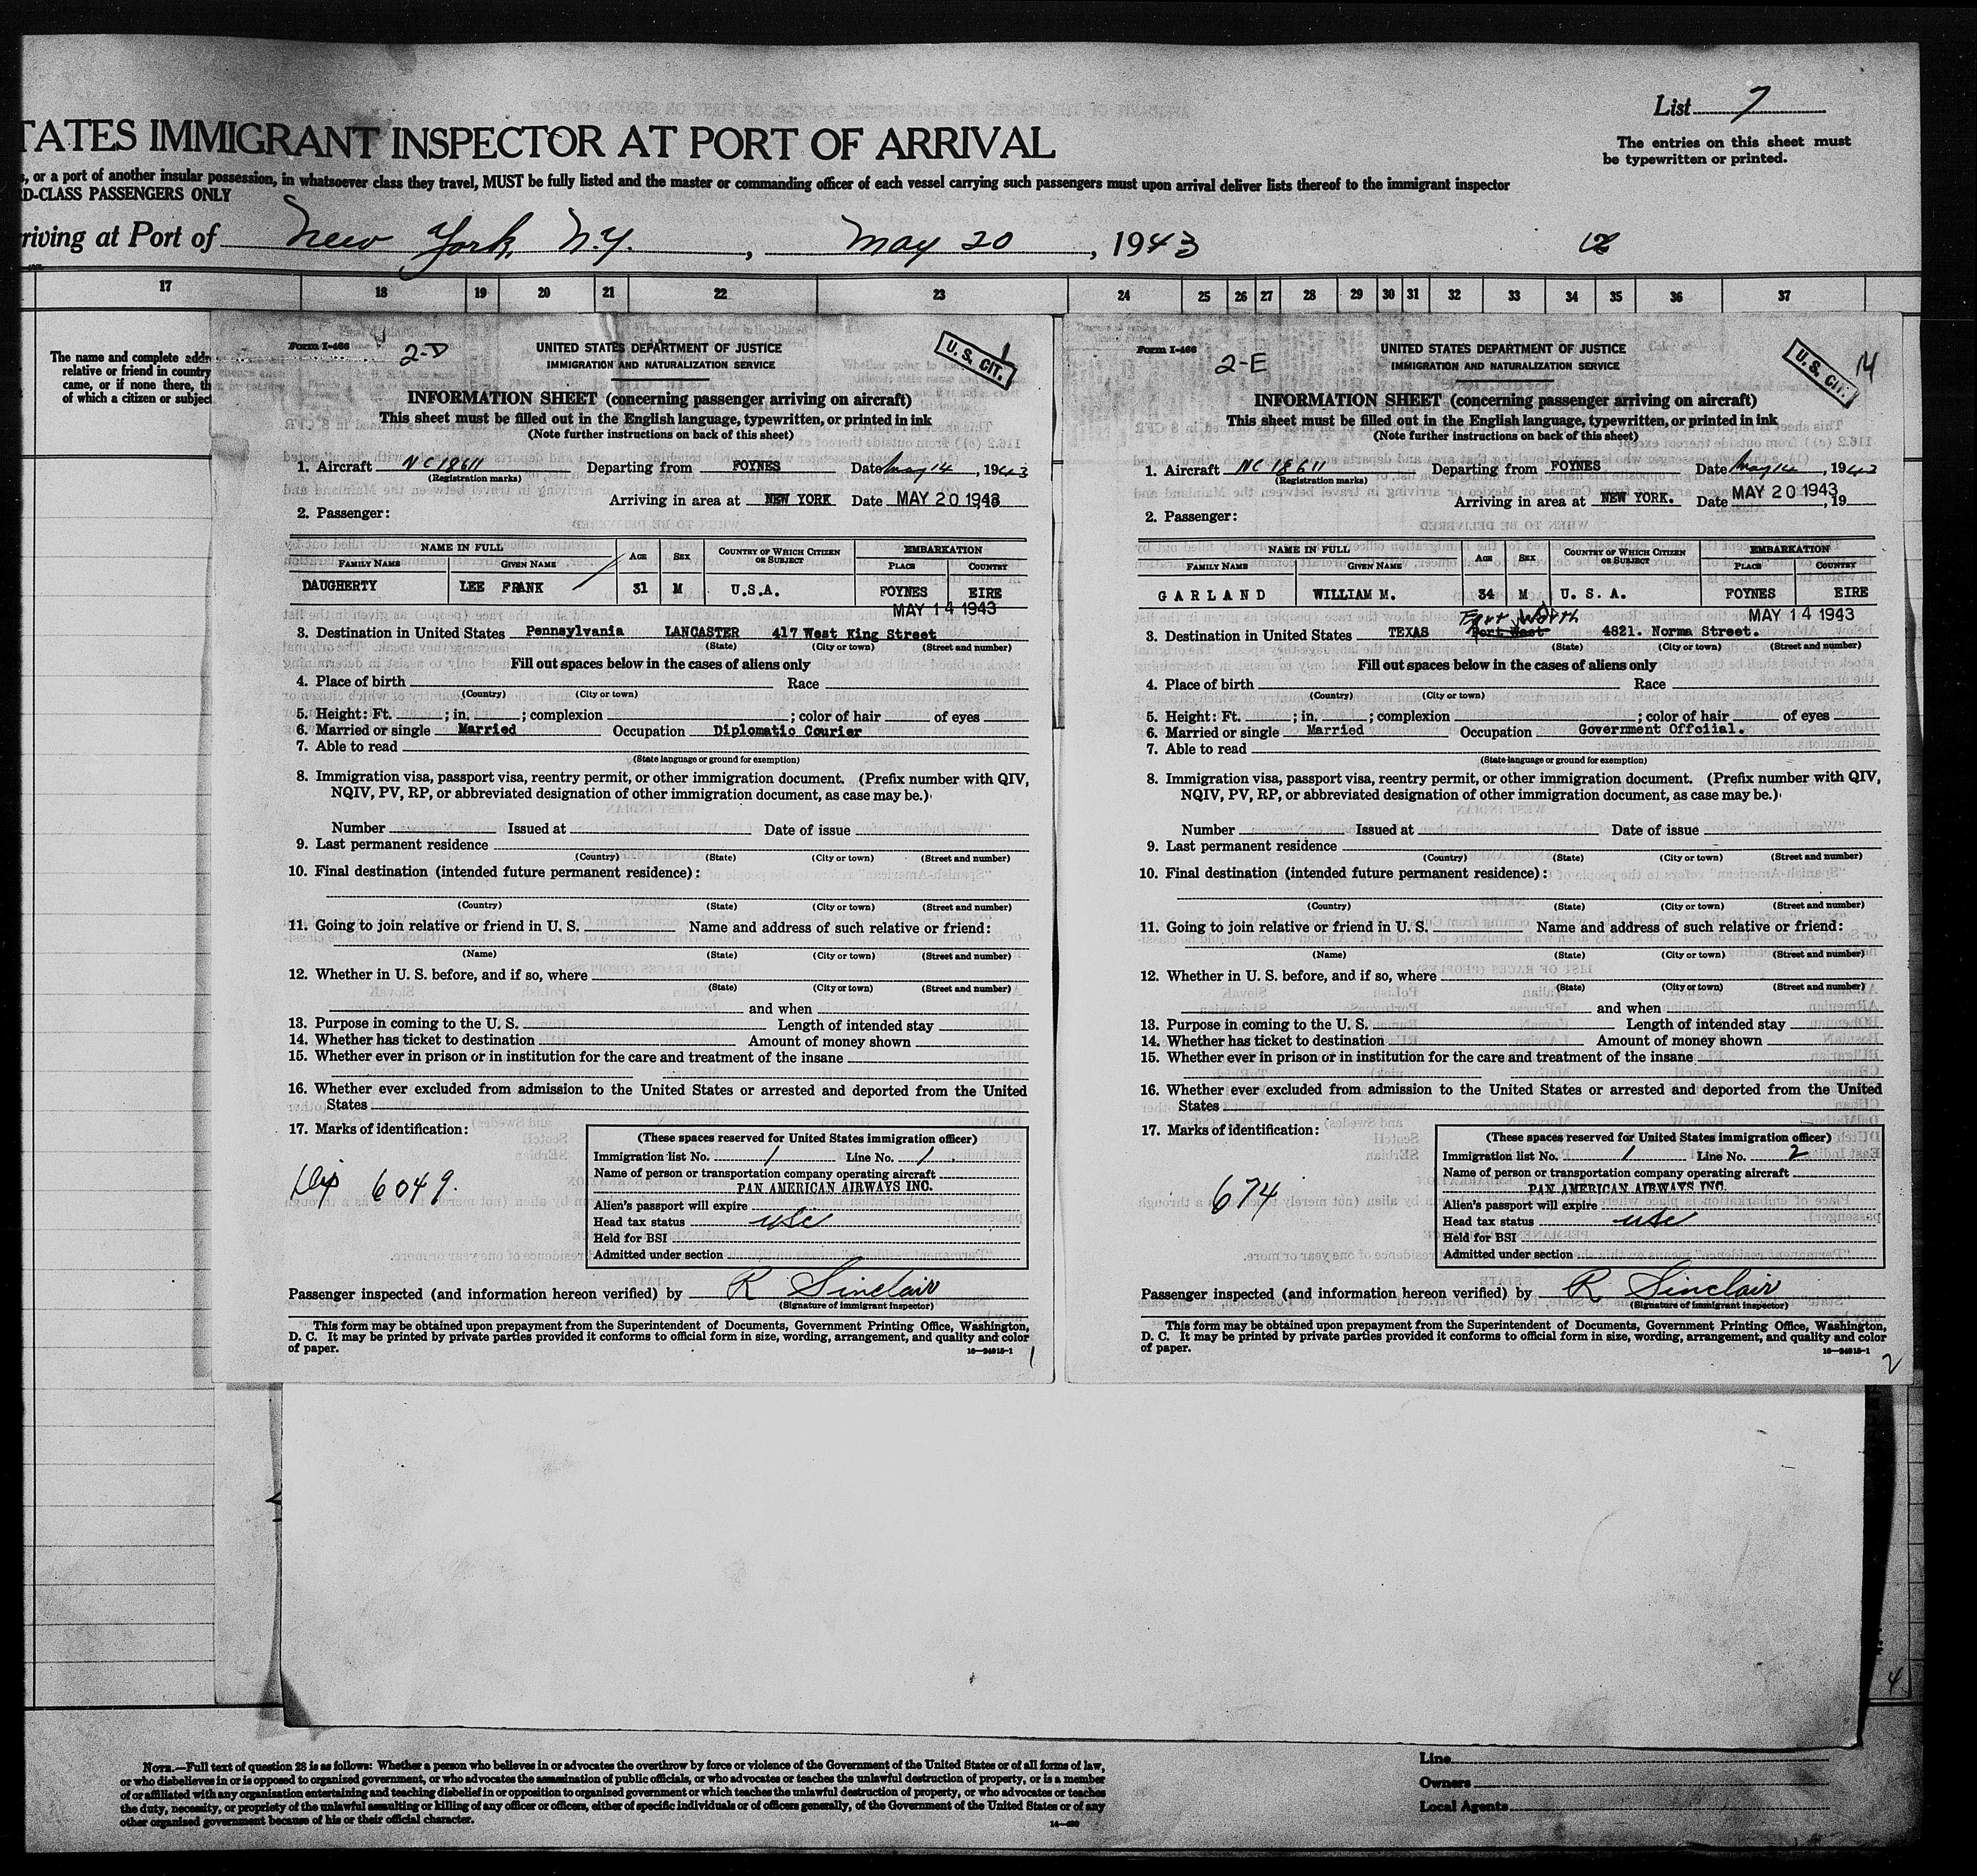 List 7
The entries on this sheet must
be typewritten or printed.
TATES IMMIGRANT INSPECTOR AT PORT OF ARRIVAL
s, or a port of another insular possession, in whatsoever class they travel, MUST be fully listed and the master or commanding officer of each vessel carrying such passengers must upon arrival deliver lists thereof to the immigrant inspector
D-CLASS PASSENGERS ONLY
riving at Port of New York, N.Y., May 20, 1943
17 18 19 20 21 22 23 24 25 26 27 28 29 30 31 32 33 34 35 36 37
The name and complete addr
relative or friend in country
came, or if none there, th
of which a citizen or subject
Form I-466
2-D
UNITED STATES DEPARTMENT OF JUSTICE
IMMIGRATION AND NATURALIZATION SERVICE
U. S. CIT.
INFORMATION SHEET (concerning passenger arriving on aircraft)
This sheet must be filled out in the English language, typewritten, or printed in ink
(Note further instructions on back of this sheet)
1. Aircraft NC18611 Departing from FOYNES Date May 14, 1943
(Registration marks)
Arriving in area at NEW YORK Date MAY 20 1943
2. Passenger:
NAME IN FULL AGE SEX COUNTRY OF WHICH CITIZEN OR SUBJECT EMBARKATION
FAMILY NAME GIVEN NAME PLACE COUNTRY
DAUGHERTY LEE FRANK 31 M U.S.A. FOYNES EIRE
MAY 14 1943
3. Destination in United States Pennsylvania LANCASTER 417 West King Street
(State) (City or town) (Street and number)
Fill out spaces below in the cases of aliens only
4. Place of birth Race
(Country) (City or town)
5. Height: Ft. ; in. ; complexion ; color of hair of eyes
6. Married or single Married Occupation Diplomatic Courier
7. Able to read
(State language or ground for exemption)
8. Immigration visa, passport visa, reentry permit, or other immigration document. (Prefix number with QIV,
NQIV, PV, RP, or abbreviated designation of other immigration document, as case may be.)
Number Issued at Date of issue
9. Last permanent residence
(Country) (State) (City or town) (Street and number)
10. Final destination (intended future permanent residence):
(Country) (State) (City or town) (Street and number)
11. Going to join relative or friend in U. S. Name and address of such relative or friend:
(Name) (State) (City or town) (Street and number)
12. Whether in U. S. before, and if so, where
(State) (City or town) (Street and number)
and when
13. Purpose in coming to the U. S. Length of intended stay
14. Whether has ticket to destination Amount of money shown
15. Whether ever in prison or in institution for the care and treatment of the insane
16. Whether ever excluded from admission to the United States or arrested and deported from the United
States
17. Marks of identification:
Dip 6049.
(These spaces reserved for United States immigration officer)
Immigration list No. 1 Line No. 1
Name of person or transportation company operating aircraft
PAN AMERICAN AIRWAYS INC.
Alien's passport will expire
Head tax status usc
Held for BSI
Admitted under section
Passenger inspected (and information hereon verified) by R Sinclair
(Signature of immigrant inspector)
This form may be obtained upon prepayment from the Superintendent of Documents, Government Printing Office, Washington,
D. C. It may be printed by private parties provided it conforms to official form in size, wording, arrangement, and quality and color
of paper.
16—24915-1
1
Form I-466
2-E
UNITED STATES DEPARTMENT OF JUSTICE
IMMIGRATION AND NATURALIZATION SERVICE
U. S. CIT.
14
INFORMATION SHEET (concerning passenger arriving on aircraft)
This sheet must be filled out in the English language, typewritten, or printed in ink
(Note further instructions on back of this sheet)
1. Aircraft NC18611 Departing from FOYNES Date May 14, 1943
(Registration marks)
Arriving in area at NEW YORK. Date MAY 20 1943, 19
2. Passenger:
NAME IN FULL AGE SEX COUNTRY OF WHICH CITIZEN OR SUBJECT EMBARKATION
FAMILY NAME GIVEN NAME PLACE COUNTRY
GARLAND WILLIAM M. 34 M U. S. A. FOYNES EIRE
Fort Worth MAY 14 1943
3. Destination in United States TEXAS Port West 4821. Norma Street.
(State) (City or town) (Street and number)
Fill out spaces below in the cases of aliens only
4. Place of birth Race
(Country) (City or town)
5. Height: Ft. ; in. ; complexion ; color of hair of eyes
6. Married or single Married Occupation Government Offciial.
7. Able to read
(State language or ground for exemption)
8. Immigration visa, passport visa, reentry permit, or other immigration document. (Prefix number with QIV,
NQIV, PV, RP, or abbreviated designation of other immigration document, as case may be.)
Number Issued at Date of issue
9. Last permanent residence
(Country) (State) (City or town) (Street and number)
10. Final destination (intended future permanent residence):
(Country) (State) (City or town) (Street and number)
11. Going to join relative or friend in U. S. Name and address of such relative or friend:
(Name) (State) (City or town) (Street and number)
12. Whether in U. S. before, and if so, where
(State) (City or town) (Street and number)
and when
13. Purpose in coming to the U. S. Length of intended stay
14. Whether has ticket to destination Amount of money shown
15. Whether ever in prison or in institution for the care and treatment of the insane
16. Whether ever excluded from admission to the United States or arrested and deported from the United
States
17. Marks of identification:
674
(These spaces reserved for United States immigration officer)
Immigration list No. 1 Line No. 2
Name of person or transportation company operating aircraft
PAN AMERICAN AIRWAYS INC.
Alien's passport will expire
Head tax status usc
Held for BSI
Admitted under section
Passenger inspected (and information hereon verified) by R Sinclair
(Signature of immigrant inspector)
This form may be obtained upon prepayment from the Superintendent of Documents, Government Printing Office, Washington,
D. C. It may be printed by private parties provided it conforms to official form in size, wording, arrangement, and quality and color
of paper.
16—24915-1
2
4
NOTE.—Full text of question 28 is as follows: Whether a person who believes in or advocates the overthrow by force or violence of the Government of the United States or of all forms of law,
or who disbelieves in or is opposed to organized government, or who advocates the assassination of public officials, or who advocates or teaches the unlawful destruction of property, or is a member
of or affiliated with any organization entertaining and teaching disbelief in or opposition to organized government or which teaches the unlawful destruction of property, or who advocates or teaches
the duty, necessity, or propriety of the unlawful assaulting or killing of any officer or officers, either of specific individuals or of officers generally, of the Government of the United States or of any
other organized government because of his or their official character.
Line
Owners
Local Agents